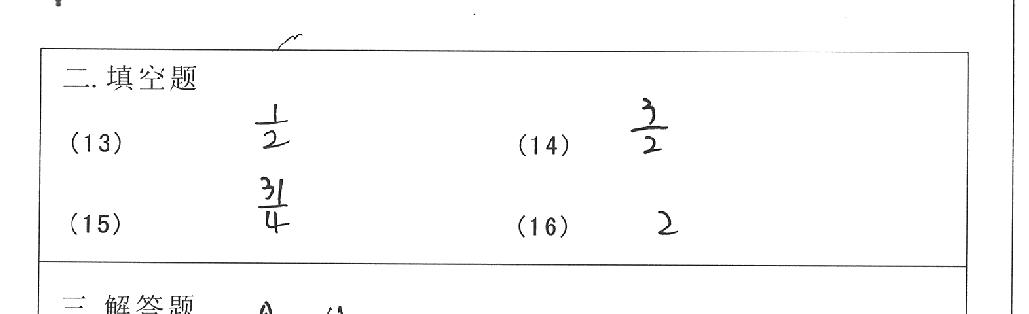 二.填空题
(13) 1/2 (14) 3/2
(15) 31/4 (16) 2
三.解答题